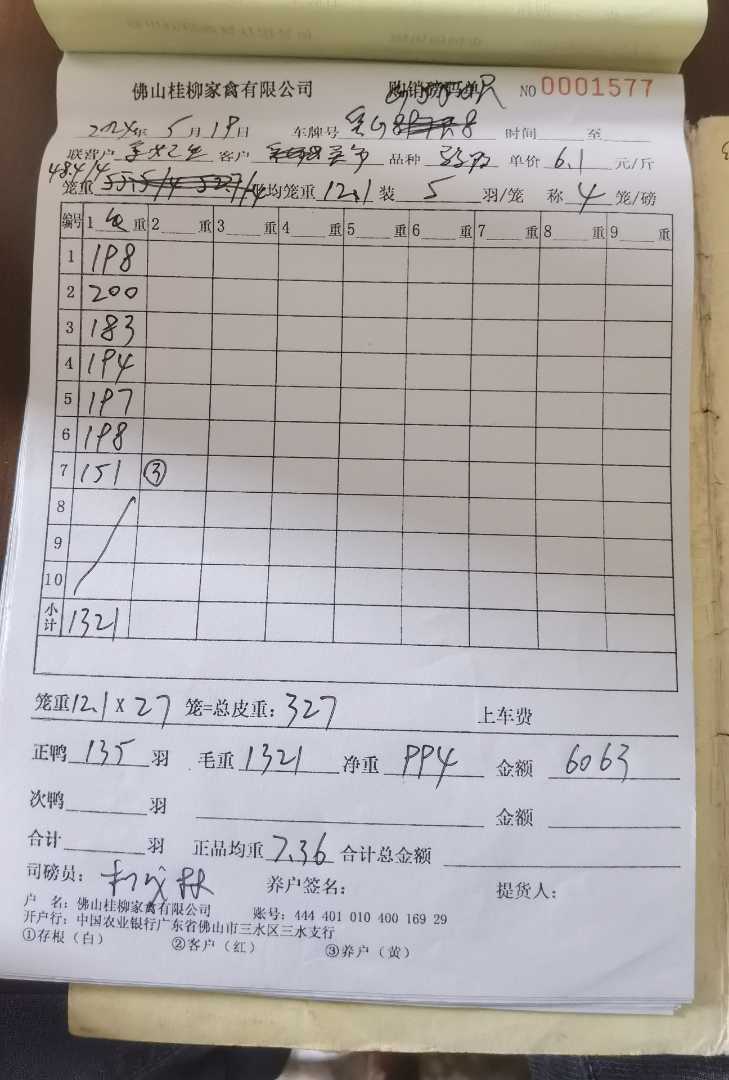 佛山桂柳家禽有限公司 购销磅码单 NO 0001577
2024年 5月 19日 车牌号 时间 至
联营户 客户 品种 单价 6.1 元/斤
48.4/4
笼重 平均笼重 12.1 装 5 羽/笼 称 4 笼/磅
编号 1 重 2 重 3 重 4 重 5 重 6 重 7 重 8 重 9 重
1 198
2 200
3 183
4 194
5 197
6 198
7 151 ③
8
9
10
小计 1321
笼重 12.1 x 27 笼=总皮重: 327 上车费
正鸭 135 羽 毛重 1321 净重 994 金额 6063
次鸭 羽 金额
合计 羽 正品均重 7.36 合计总金额
司磅员: 养户签名: 提货人:
户 名: 佛山桂柳家禽有限公司 账号: 444 401 010 400 169 29
开户行: 中国农业银行广东省佛山市三水区三水支行
①存根（白） ②客户（红） ③养户（黄）